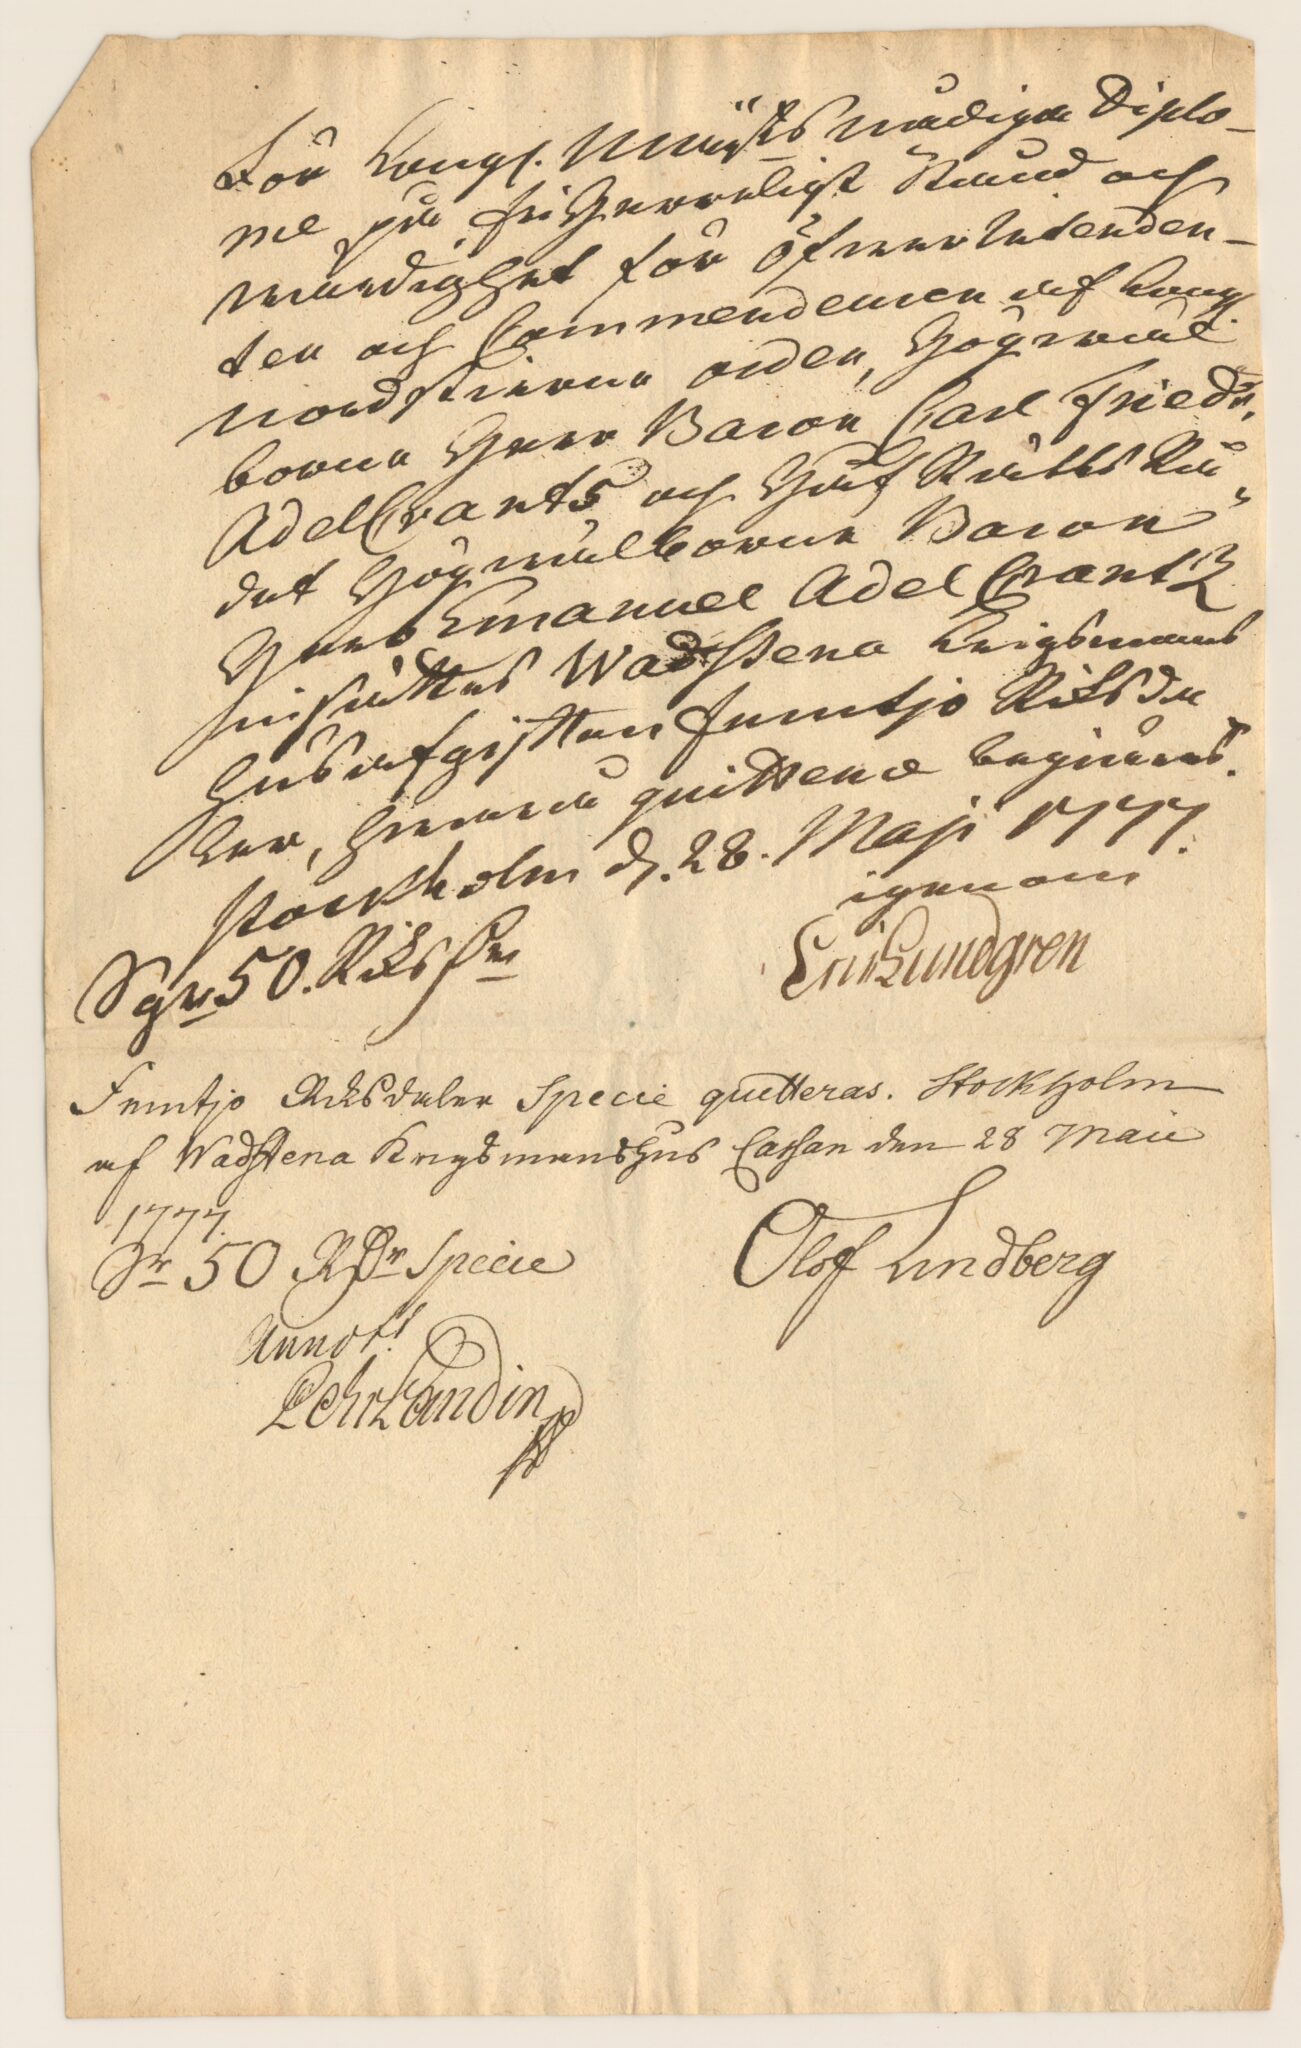 För Kongl. Maij:ts nådiga Diplo-
me på friherreligit Stånd och
wärdighet för Öfwer Intenden-
ten och Commendeuren af Kongl.
nordstierne orden, Högwäl
borne Herr Baron Carl Friedr.
AdelCrants och Hof Rätts Rå-
det Högwälborne Baron
Herr Emanuel AdelCrantz
insättes Wadstena Krigsmans
hus afgiften femtjo Riksda
ler, hwarå quittence begiäres.
Stockholm d. 28. Maji 1777.
igenom
Sgr 50. Riksdr
Eric Lundgren
Femtjo Riksdaler Specie quitteras. Stockholm
af Wadstena Krigsmanshus Cassan den 28 Maii
1777.
Sr 50 Rdr Specie
Olof Lundberg
Annot:
Pehr Landin